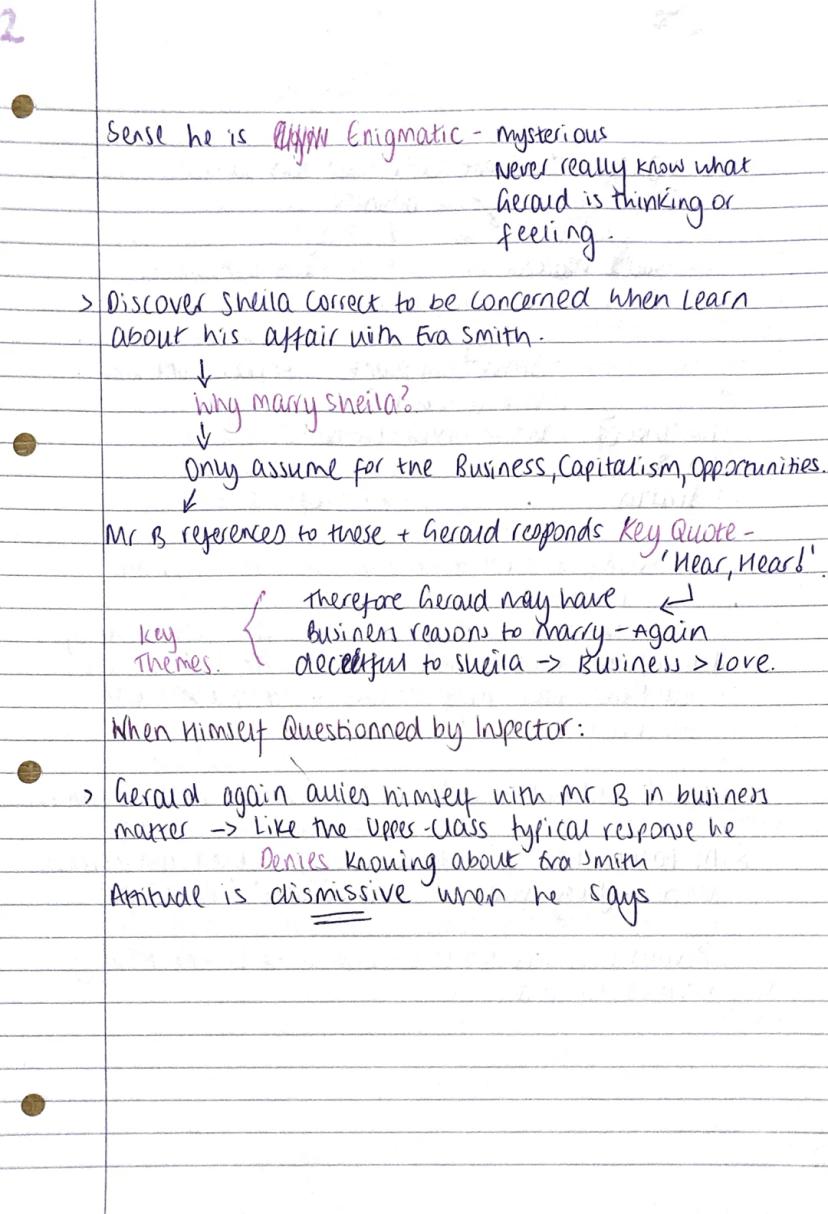 2
Sense he is Enigmatic - Mysterious
Never really know what
Gerald is thinking or
feeling.
> Discover Sheila correct to be concerned when learn
about his affair with Eva Smith.
↓
Why marry Sheila?
↓
Only assume for the Business, Capitalism, Opportunities.
↓
Mr B references to these + Gerald responds Key Quote -
'Hear, Hear!'.
Therefore Gerald may have ↵
Key Business reasons to marry - Again
Themes. deceitful to Sheila -> Business > Love.
When Himself Questionned by Inspector:
> Gerald again allies himself with Mr B in business
matter -> Like the Upper-Class typical response he
Denies knowing about Eva Smith
Attitude is dismissive when he says